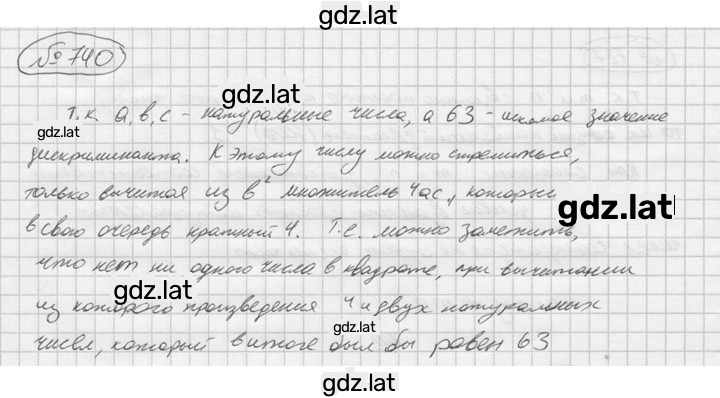 gdz.lat
№740
gdz.lat
Т.к. a, b, c – натуральные числа, а 63 – искомое значение
gdz.lat
дискриминанта. К этому числу можно стремиться,
только вычитая из b² множитель 4ac, который
gdz.lat
в свою очередь кратный 4. Т.е. можно заметить,
что нет ни одного числа в квадрате, при вычитании
gdz.lat
из которого произведения 4 и двух натуральных
gdz.lat
чисел, который в итоге был бы равен 63
gdz.lat